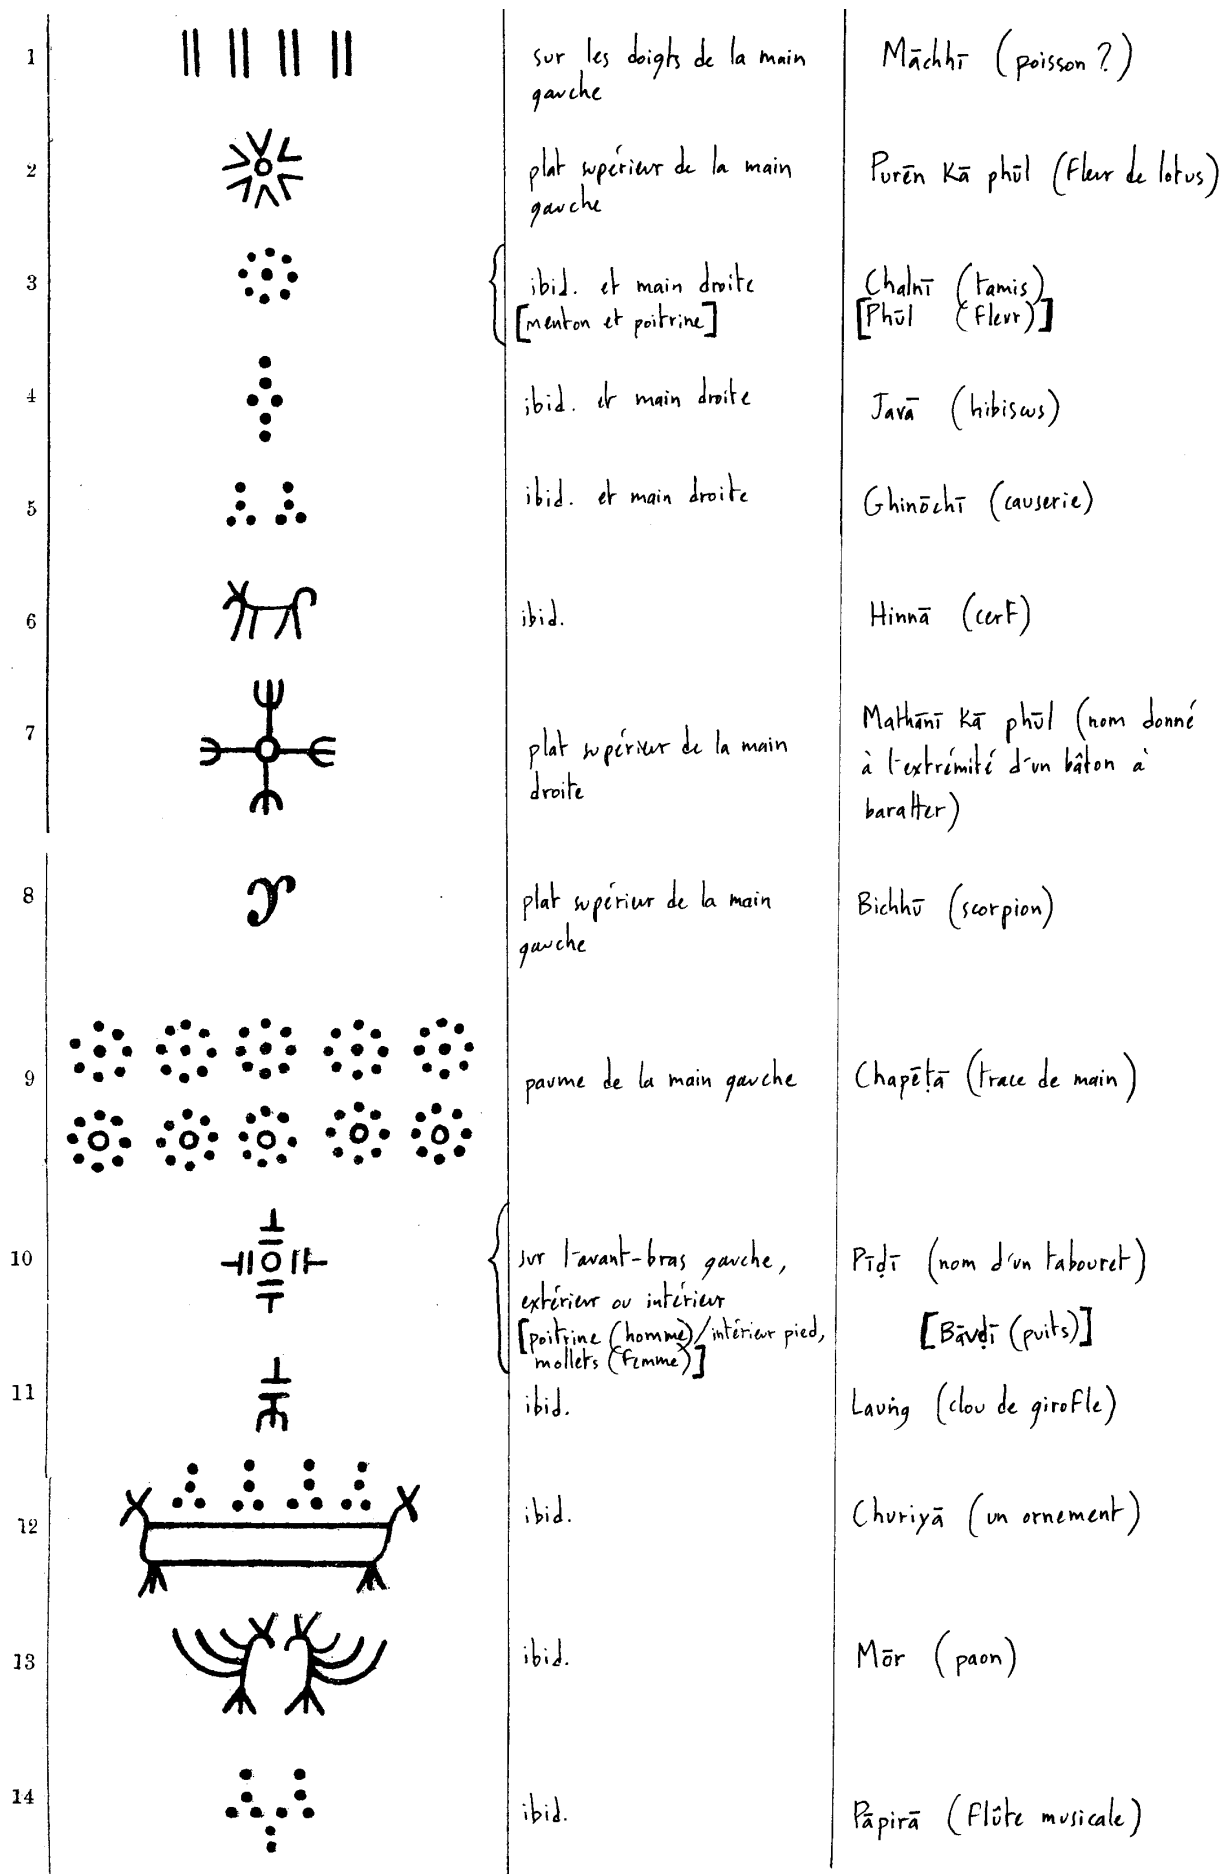 1
sur les doigts de la main
gauche
Māchhī (poisson ?)
2
plat supérieur de la main
gauche
Purēn kā phūl (fleur de lotus)
3
ibid. et main droite
[menton et poitrine]
Chalnī (tamis)
[Phūl (fleur)]
4
ibid. et main droite
Javā (hibiscus)
5
ibid. et main droite
Ghinōchī (causerie)
6
ibid.
Hinnā (cerf)
7
plat supérieur de la main
droite
Mathānī kā phūl (nom donné
à l'extrémité d'un bâton à
baratter)
8
plat supérieur de la main
gauche
Bichhū (scorpion)
9
paume de la main gauche
Chapēṭā (trace de main)
10
sur l'avant-bras gauche,
extérieur ou intérieur
[poitrine (homme)/intérieur pied,
mollets (femme)]
Pīḍī (nom d'un tabouret)
[Bāvḍī (puits)]
11
ibid.
Lauṅg (clou de girofle)
12
ibid.
Churiyā (un ornement)
13
ibid.
Mōr (paon)
14
ibid.
Pāpirā (flûte musicale)